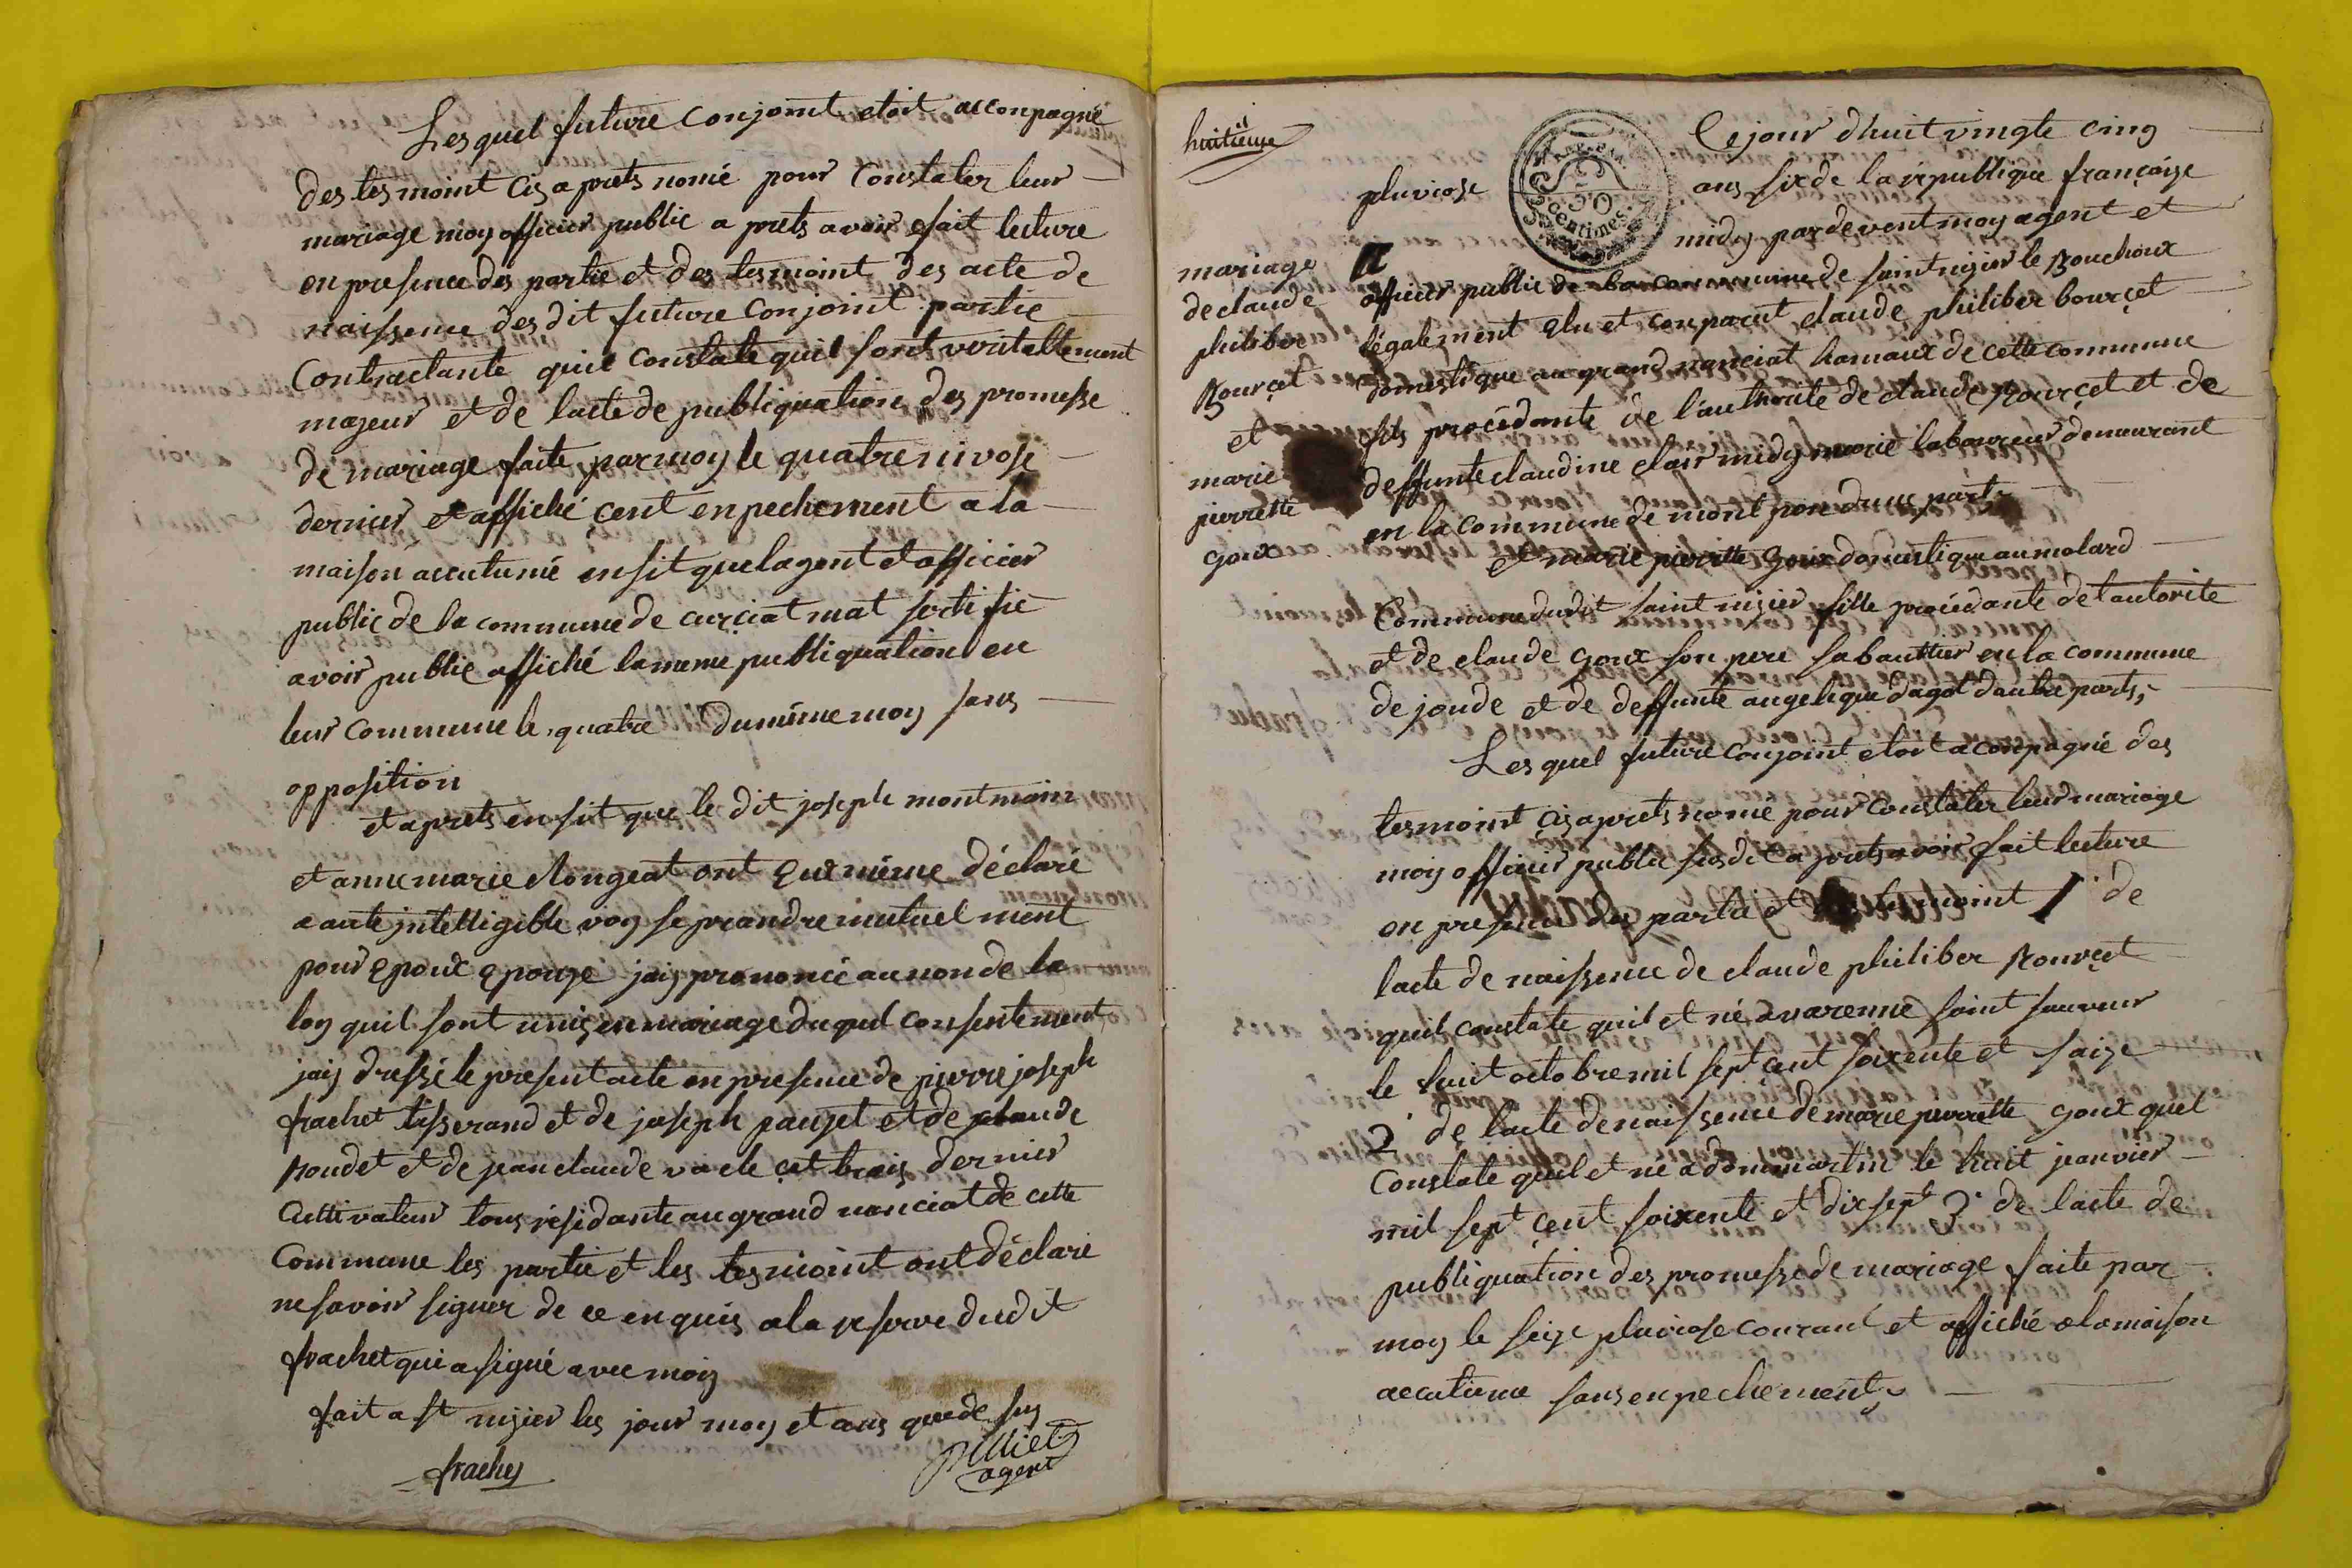 Lesquel future conjoint etoit acconpagné
des tesmoint cis aprets nomé pour constater leur
mariage moy officier public a prets avoir fait lecture
en presence des partie et des tesmoint des acte de
naissence des dit future conjoint partie
contractante quil constate quil sont veritablement
majeur et de lacte de publiquation des promesse
de mariage faite par moy le quatre nivose
dernier et affiché cent enpechement a la
maison accutumé ensit que lagent et officier
public de la commune de curciat mat sertifié
avoir public affiché la meme publiquation en
leur commune le quatre du même moy sans
opposition
et aprets ensit que le dit joseph montmain
et anne marie longeat ont eux même déclaré
a aute jntelligible voy se prandre mutuel ment
pour epoux epouze jais prononcé au non de la
loy quil sont unis en mariage duquel consentement
jais dressé le present acte en presence de pierre joseph
frachet tisserand et de joseph pauget et de claude
boudet et de jean claude vacle cet trois dernier
cultivateur tous résidante au grand nanciat de cette
commune les partie et les tesmoint ont déclaré
ne savoir signer de ce enquis a la reserve dudit
frachet qui a signé avec moy
fait a st nizier les jour moy et ans que de sus
frachet
pilliet
agent
huitieme
Cejour dhuit vingte cinq
pluviose
ans six de la république françaize
50 centimes
midy pardevent moy agent et
officier public de la commune de saint nizier le bouchoux
légalement elu et conparut claude philiber bourcet
domestique au grand nanciat hamaux de cette commune
fils procédante de l'authorité de claude bourcet et de
deffunte claudine clair midy marié laboureur demeurant
en la commune de mont pon dune part
et marie pierrette goux domestique au molard
commune dudit saint nizier fille procédante de lautorité
et de claude goux son pere sabauttier en la commune
de joude et de deffunte angelique dagot dautre parts
mariage
de claude
philiber
bourcet
et
marie
pierrette
goux
Lesquel future conjoint etoit aconpagné des
tesmoint cis aprets nomé pour constater leur mariage
moy officier public susdit a prets avoir fait lecture
en presence des partie et tesmoint 1° de
lacte de naissence de claude philiber bourcet
quil constate quil et né a varenne saint sauveur
le huit octobre mil sept cent soixente et saize
2° de lacte de naissence de marie pierrette goux quel
constate quel et ne a dommartin le huit jeanvier
mil sept cent soixente et dix sept 3° de lacte de
publiquation des promesse de mariage faite par
moy le seize pluviose courant et affiché a la maison
accutumé sans enpechement